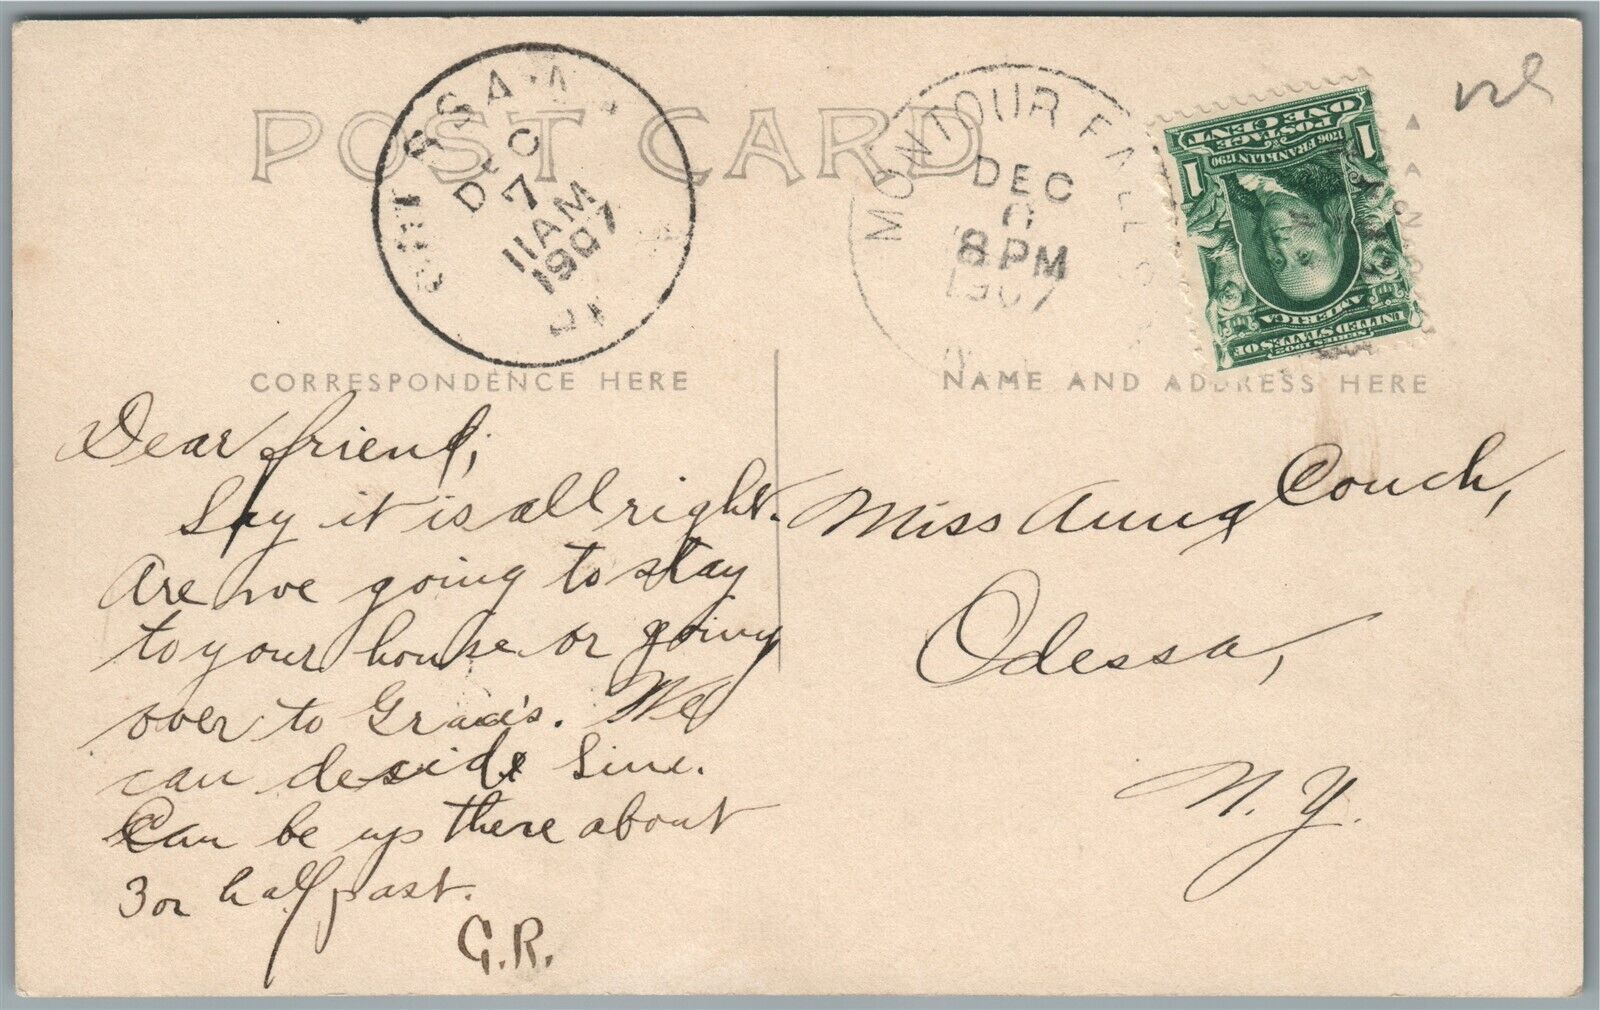 POST CARD
DEC
7
11 AM
1907
MONTOUR FALLS
DEC
8 PM
1907
1706 FRANKLIN 1790
POSTAGE
ONE CENT
1 1
SERIES 1902
UNITED STATES OF
AMERICA
CORRESPONDENCE HERE
NAME AND ADDRESS HERE
Dear friend,
Say it is all right.
Are we going to stay
to your house or going
over to Grace's. We
can deside Sure.
Can be up there about
3 or half past.
G.R.
Miss Anna Couch,
Odessa,
N.Y.